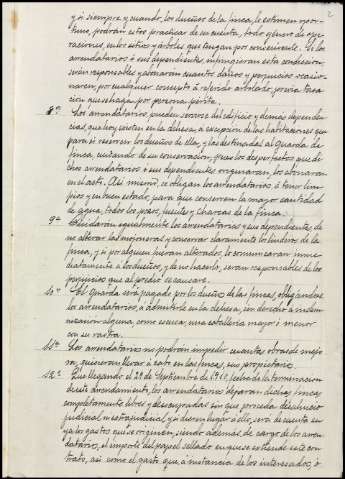 y si siempre y cuando, los dueños de la finca, lo estimen opor-
tuno, podrán estos practicar de su cuenta, todo género de ope-
raciones, en los sitios y árboles que tengan por conveniente. Si los
arrendatarios ó sus dependientes, infringieran esta condición,
serán responsables y abonarán cuantos daños y perjuicios ocasio-
naren, por cualquier concepto al referido arbolado, previa tasa-
ción que se haga, por persona perita.
8ª Los arrendatarios pueden servirse del edificio y demás dependen-
cias, que hoy existen en la dehesa, a excepción de las habitaciones que
para si reserven los dueños de ella, y las destinadas al Guarda de la
finca, cuidando de su conservación, pues los desperfectos que di-
chos arrendatarios ó sus dependientes originaran, los abonarán
en el acto. Así mismo, se obligan los arrendatarios á tener lim-
pios y en buen estado, para que conserven la mayor cantidad
de agua, todos los pozos, fuentes y Charcas de la finca.
9ª Cuidarán igualmente los arrendatarios y sus dependientes, de
no alterar las mojoneras y conservar claramente los linderos de la
finca, y si por alguien fueran alterados, lo comunicarán inme-
diatamente a los dueños, y de no hacerlo, serán responsables de los
perjuicios que al predio se causare.
10ª El Guarda será pagado por los dueños de las fincas, obligándose
los arrendatarios, a admitirle en la dehesa, sin derecho a indem-
nización alguna, como escusa, una caballería mayor ó menor
con su rastra.
11ª Los arrendatarios no podrán impedir cuantas obras de mejo-
ra, quisieran llevar á cabo en las fincas, sus propietarios.
12ª Que llegando el 29 de Septiembre de fecha de la terminación
de este arrendamiento, los arrendatarios dejarán dichas fincas
completamente libres y desocupadas sin que preceda desahucio
judicial ni extrajudicial, y si dieren lugar á ello, será de cuenta su-
ya los gastos que se originen, siendo además de cargo de los arren-
datarios, el importe del papel sellado en que se extiende este con-
trato, así como el gasto que á instancia de los interesados, ó